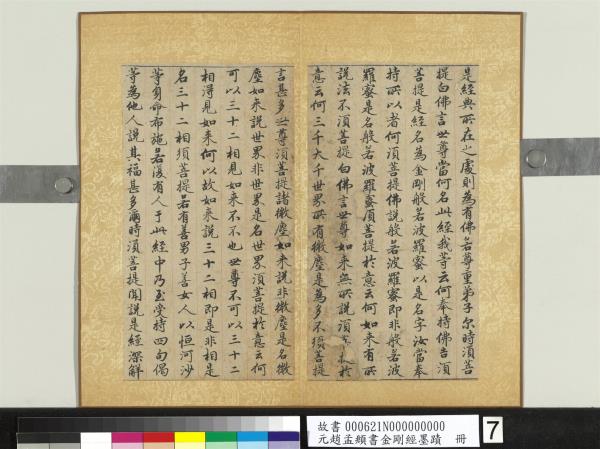 是經典所在之處則為有佛若尊重弟子尔時須菩
提白佛言世尊當何名此經我等云何奉持佛告須
菩提是經名為金剛般若波羅蜜以是名字汝當奉
持所以者何須菩提佛說般若波羅蜜即非般若波
羅蜜是名般若波羅蜜須菩提於意云何如來有所
說法不須菩提白佛言世尊如來無所說須菩提於
意云何三千大千世界所有微塵是為多不須菩提
言甚多世尊須菩提諸微塵如來說非微塵是名微
塵如來說世界非世界是名世界須菩提於意云何
可以三十二相見如來不不也世尊不可以三十二
相得見如来何以故如来說三十二相即是非相是
名三十二相須菩提若有善男子善女人以恒河沙
等身命布施若復有人于此經中乃至受持四句偈
等為他人說其福甚多爾時須菩提聞說是經深解
故書 000621N000000000
元趙孟頫書金剛經墨蹟 冊
7